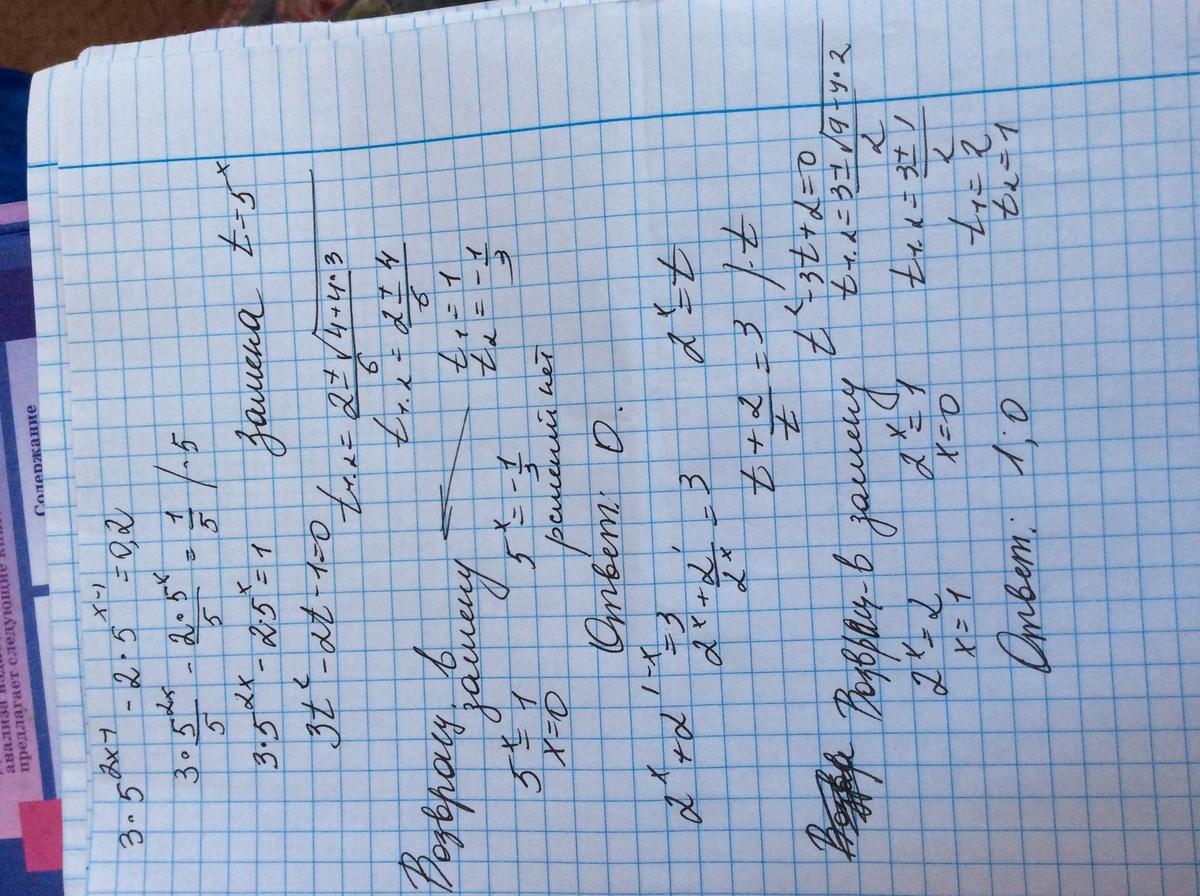 анализа изда
следующие кни
предлагает
Содержание
3·5^(2x-1) - 2·5^(x-1) = 0,2
3·5^(2x)/5 - 2·5^x/5 = 1/5 /·5
3·5^(2x) - 2·5^x = 1 замена t=5^x
3t² - 2t - 1 = 0
t₁.₂ = (2±√(4+4·3))/6
t₁.₂ = (2±4)/6
t₁ = 1
t₂ = -1/3
Возвращ. в замену
5^x = 1 5^x = -1/3
x=0 решений нет
Ответ: 0.
2^x + 2^(1-x) = 3
2^x + 2^1/2^x = 3 2^x = t
t + 2/t = 3 /·t
t² - 3t + 2 = 0
t₁.₂ = (3±√(9-4·2))/2
t₁.₂ = (3±1)/2
t₁ = 2
t₂ = 1
Возвращ-в замену
2^x = 2 2^x = 1
x = 1 x = 0
Ответ: 1; 0